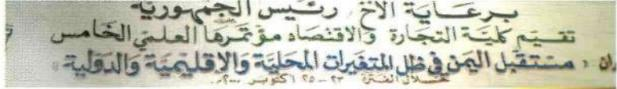 برعاية الأخ رئيس الجمهورية
تقيم كلية التجارة والاقتصاد مؤتمرها العلمي الخامس
مستقبل اليمن في ظل المتغيرات المحلية والإقليمية والدولية
خلال الفترة ٢٣-٢٥ أكتوبر